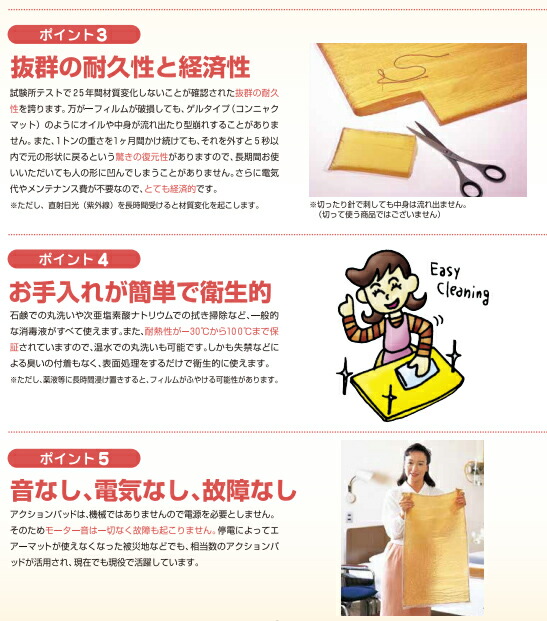 ポイント3
抜群の耐久性と経済性
試験所テストで25年間材質変化しないことが確認された抜群の耐久
性を誇ります。万が一フィルムが破損しても、ゲルタイプ（コンニャク
マット）のようにオイルや中身が流れ出たり型崩れすることがありま
せん。また、1トンの重さを1ヶ月間かけ続けても、それを外すと5秒以
内で元の形状に戻るという驚きの復元性がありますので、長期間お使
いいただいても人の形に凹んでしまうことがありません。さらに電気
代やメンテナンス費が不要なので、とても経済的です。
※ただし、直射日光（紫外線）を長時間受けると材質変化を起こします。
※切ったり針で刺しても中身は流れ出ません。
（切って使う商品ではございません）
ポイント4
お手入れが簡単で衛生的
石鹸での丸洗いや次亜塩素酸ナトリウムでの拭き掃除など、一般的
な消毒液がすべて使えます。また、耐熱性が−30℃から100℃まで保
証されていますので、温水での丸洗いも可能です。しかも失禁などに
よる臭いの付着もなく、表面処理をするだけで衛生的に使えます。
※ただし、薬液等に長時間浸け置きすると、フィルムがふやける可能性があります。
Easy
Cleaning
ポイント5
音なし、電気なし、故障なし
アクションパッドは、機械ではありませんので電源を必要としません。
そのためモーター音は一切なく故障も起こりません。停電によってエ
アーマットが使えなくなった被災地などでも、相当数のアクションパ
ッドが活用され、現在でも現役で活躍しています。